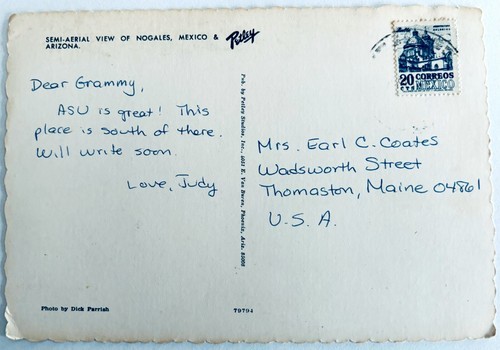 SEMI-AERIAL VIEW OF NOGALES, MEXICO &
ARIZONA.
Petley
Dear Grammy,
ASU is great! This
place is south of there.
Will write soon.
Love, Judy
Pub. by Petley Studios, Inc., 4051 E. Van Buren, Phoenix, Ariz. 85008
20 CORREOS
CTS MEXICO
Mrs. Earl C. Coates
Wadsworth Street
Thomaston, Maine 04861
U.S.A.
Photo by Dick Parrish
79794